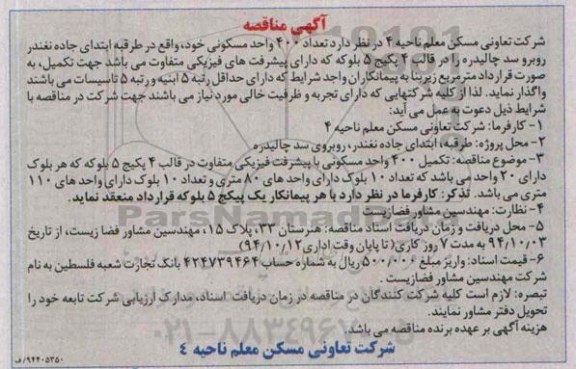 آگهی مناقصه
شرکت تعاونی مسکن معلم ناحیه ۴ در نظر دارد تعداد ۴۰۰ واحد مسکونی خود، واقع در طرقبه ابتدای جاده نغندر
روبرو سد چالیدره را در قالب ۴ پکیج ۵ بلوکه که دارای پیشرفت های فیزیکی متفاوت می باشد جهت تکمیل، به
صورت قرارداد مترمربع زیربنا به پیمانکاران واجد شرایط که دارای حداقل رتبه ۵ ابنیه و رتبه ۵ تاسیسات می باشند
واگذار نماید. لذا از کلیه شرکتهایی که دارای تجربه و ظرفیت خالی مورد نیاز می باشند جهت شرکت در مناقصه با
شرایط ذیل دعوت به عمل می آید:
۱- کارفرما: شرکت تعاونی مسکن معلم ناحیه ۴
۲- محل پروژه: طرقبه، ابتدای جاده نغندر، روبروی سد چالیدره
۳- موضوع مناقصه: تکمیل ۴۰۰ واحد مسکونی با پیشرفت فیزیکی متفاوت در قالب ۴ پکیج ۵ بلوکه که هر بلوک
دارای ۲۰ واحد می باشد که تعداد ۱۰ بلوک دارای واحد های ۸۰ متری و تعداد ۱۰ بلوک دارای واحد های ۱۱۰
متری می باشد. تذکر: کارفرما در نظر دارد با هر پیمانکار یک پیکج ۵ بلوکه قرارداد منعقد نماید.
۴- نظارت: مهندسین مشاور فضازیست
۵- محل دریافت و زمان دریافت اسناد مناقصه: هنرستان ۳۳، پلاک ۱۵، مهندسین مشاور فضا زیست، از تاریخ
۹۴/۱۰/۰۳ به مدت ۷ روز کاری( تا پایان وقت اداری ۹۴/۱۰/۱۲)
۶- قیمت اسناد: واریز مبلغ ۵۰۰/۰۰۰ ریال به شماره حساب ۴۲۴۷۳۹۴۶۴ بانک تجارت شعبه فلسطین به نام
شرکت مهندسین مشاور فضازیست.
تبصره: لازم است کلیه شرکت کنندگان در مناقصه در زمان دریافت اسناد، مدارک ارزیابی شرکت تابعه خود را
تحویل دفتر مشاور نمایند.
هزینه آگهی بر عهده برنده مناقصه می باشد
شرکت تعاونی مسکن معلم ناحیه ٤
۹۴۴۰۵۳۵۰/ف
ParsNamadData
۰۲۱-۸۸۳۴۹۶۷۰